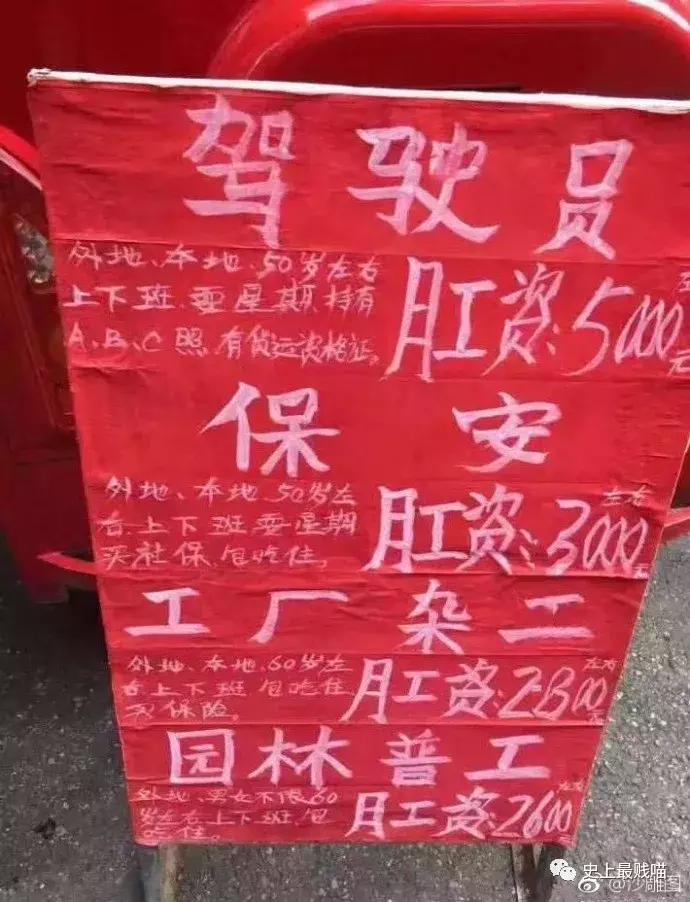 驾驶员
外地、本地、50岁左右
上下班、耍星期持有
A、B、C照、有货运资格证。
月工资:5000元
保安
外地、本地、50岁左
右、上下班、耍星期
买社保、包吃住。
月工资:3000左右元
工厂杂二
外地、本地、60岁左
右上下班包吃住
买保险。
月工资:2300左右元
园林普工
外地、男女不限60
岁左右上下班、包
吃住。
月工资:2600左右元
史上最贱喵
@沙雕图